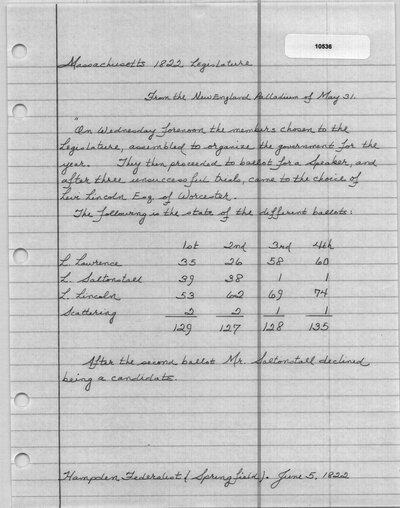 10536
Massachusetts 1822 Legislature
From the New England Palladium of May 31.
"
On Wednesday forenoon the members chosen to the
Legislature, assembled to organize the government for the
year. They then proceeded to ballot for a Speaker, and
after three unsuccessful trials, came to the choice of
Levi Lincoln Esq. of Worcester.
The following is the state of the different ballots:
1st 2nd 3rd 4th
L. Lawrence 35 26 58 60
L. Saltonstall 39 38 1 1
L. Lincoln 53 62 69 74
Scattering 2 2 1 1
129 127 128 135
After the second ballot Mr. Saltonstall declined
being a candidate.
Hampden Federalist (Springfield). June 5, 1822